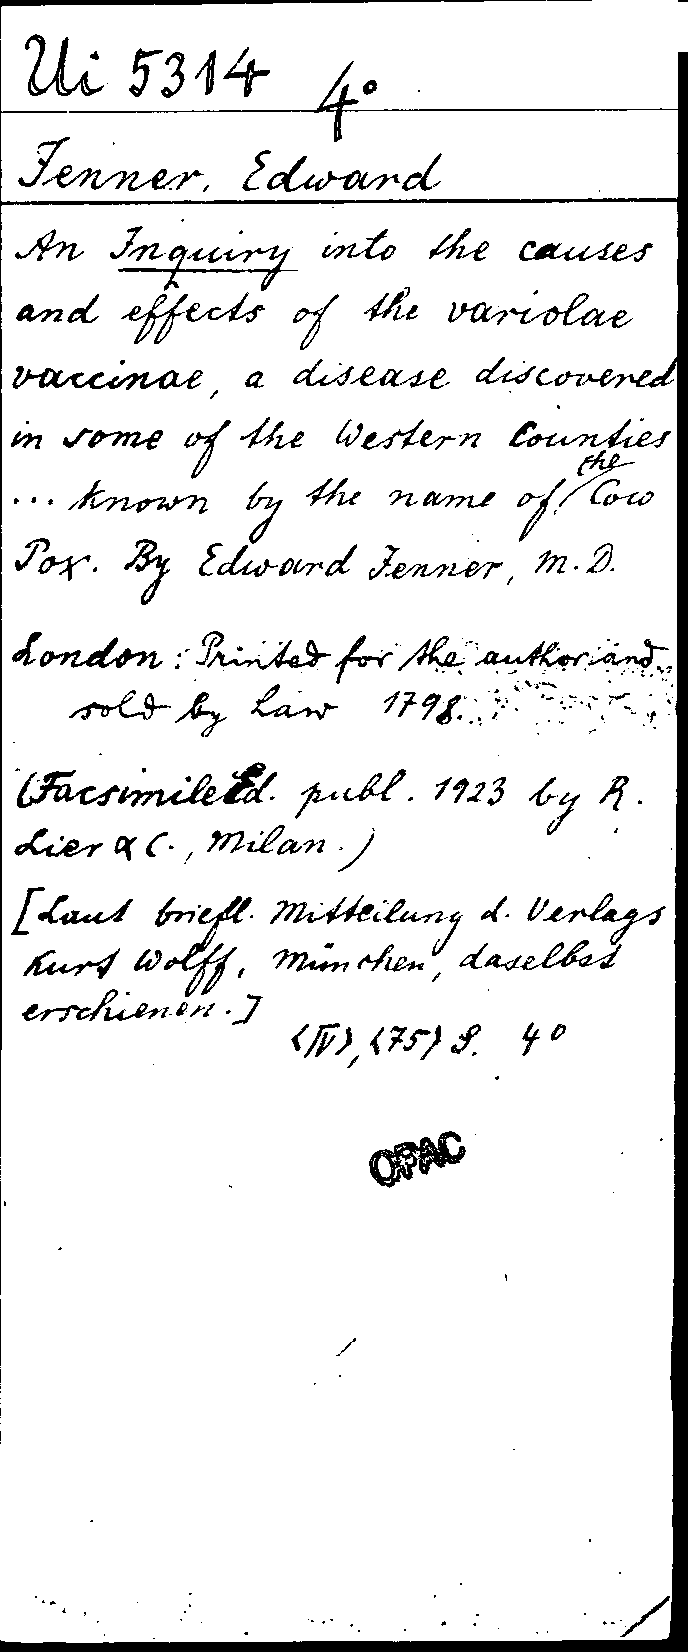 Ui 5314 4°
Jenner, Edward
An Inquiry into the causes
and effects of the variolae
vaccinae, a disease discovered
in some of the Western Counties
... known by the name of the Cow
Pox. By Edward Jenner, M.D.
London: Printed for the author and
sold by Law 1798.
(Facsimile Ed. publ. 1923 by R.
Lier & C., Milan.)
[Laut briefl. Mitteilung d. Verlags
Kurt Wolff, München, daselbst
erschienen.]
<IV>, <75> S. 4°
OPAC